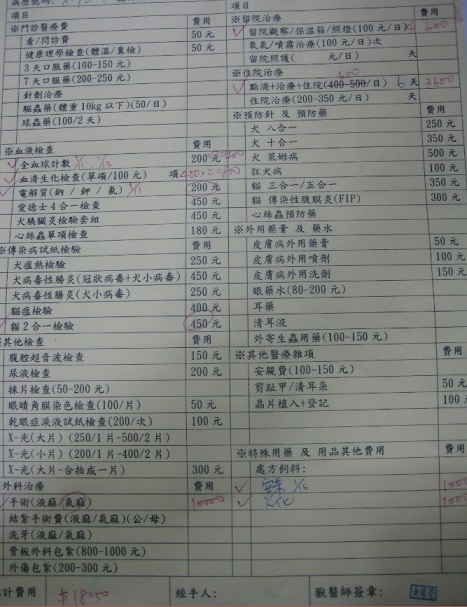 項目
費用
※門診醫療費
看/問診費 50 元
健康理學檢查(體溫/糞檢) 50 元
3 天口服藥(100-150 元)
7 天口服藥(200-250 元)
針劑治療
驅蟲藥(體重 10kg 以下)(50/日)
球蟲藥(100/2 天)
※血液檢查 費用
全血球計數 200 元
血清生化檢查(單項/100 元) 項
電解質(鈉 / 鉀 / 氯) 200 元
愛德士 4 合一檢查 450 元
犬胰臟炎檢驗套組 450 元
心絲蟲單項檢查 180 元
※傳染病試紙檢驗 費用
犬瘟熱檢驗 250 元
犬病毒性腸炎(冠狀病毒+犬小病毒) 450 元
犬病毒性腸炎(犬小病毒) 250 元
貓瘟檢驗 400 元
貓 2 合一檢驗 450 元
其他檢查 費用
腹腔超音波檢查 150 元
尿液檢查 200 元
抹片檢查(50-200 元)
眼睛角膜染色檢查(100/片) 50 元
乾眼症淚液試紙檢查(200/次) 100 元
X-光(大片) (250/1 片-500/2 片)
X-光(小片) (200/1 片-400/2 片)
X-光(大片-合拍成一片) 300 元
外科治療 費用
手術(液麻/氣麻) 10000
結紮手術費(液麻/氣麻)(公/母)
洗牙(液麻/氣麻)
骨板外科包紮(800-1000 元)
外傷包紮(200-300 元)
計費用 $18050
項目
※留院治療 費用
留院觀察/保溫箱/照燈(100 元/日) 600
氧氣/噴霧治療(100 元/日)次
留院照護( 元/日) 天
※住院治療 600
點滴+治療+住院(400-500/日) 6 天 3600
住院治療(200-350 元/日) 天
※預防針 及 預防藥
犬 八合一 250 元
犬 十合一 350 元
犬 萊姆病 500 元
狂犬病 100 元
貓 三合一/五合一 350 元
貓 傳染性腹膜炎(FIP) 300 元
心絲蟲預防藥
※外用藥膏 及 藥水
皮膚病外用藥膏 50 元
皮膚病外用噴劑 100 元
皮膚病外用洗劑 150 元
眼藥水(80-200 元)
耳藥
清耳液
外寄生蟲用藥(100-150 元)
※其他醫療雜項 費用
安親費(100-150 元)
剪趾甲/清耳朵 50 元
晶片植入+登記 100
※特殊用藥 及 用品其他費用 費用
處方飼料:
經手人:
獸醫師簽章: